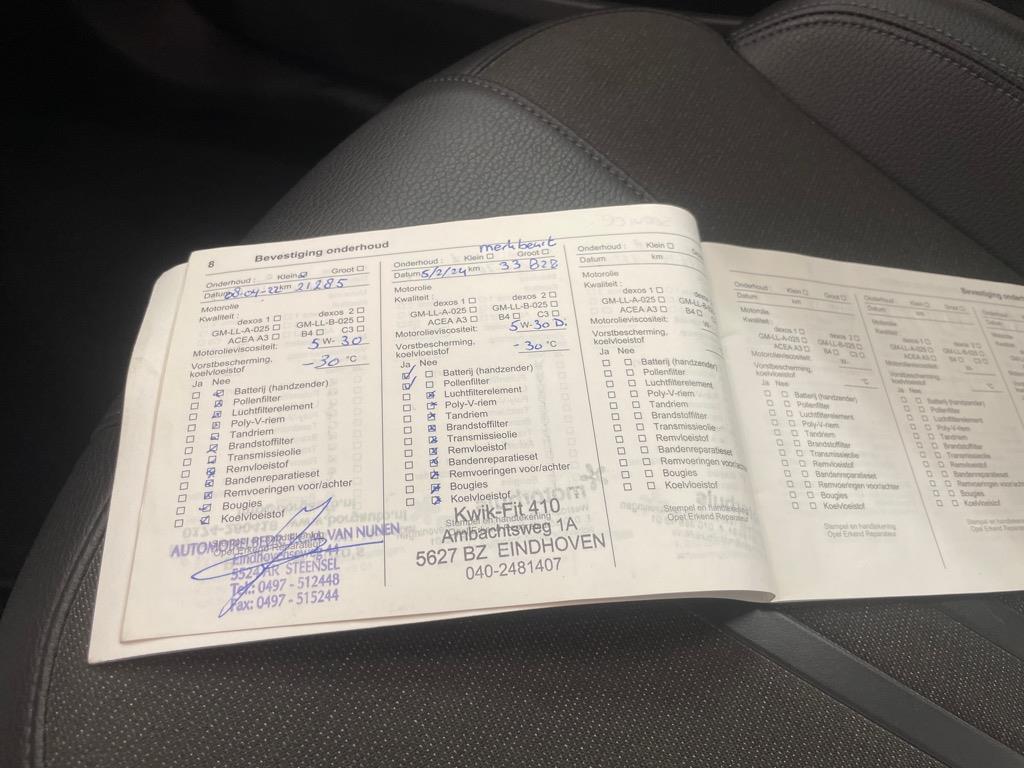 8 Bevestiging onderhoud
Onderhoud : Klein ☑ Groot ☐
Datum 08-04-22 km 21285
Motorolie
Kwaliteit :
dexos 1 ☐ dexos 2 ☐
GM-LL-A-025 ☐ GM-LL-B-025 ☐
ACEA A3 ☐ B4 ☐ C3 ☐
Motorolieviscositeit: 5 W- 30
Vorstbescherming,
koelvloeistof -30 °C
Ja Nee
☐ ☒ Batterij (handzender)
☐ ☒ Pollenfilter
☐ ☒ Luchtfilterelement
☐ ☒ Poly-V-riem
☐ ☒ Tandriem
☐ ☒ Brandstoffilter
☐ ☒ Transmissieolie
☐ ☒ Remvloeistof
☐ ☒ Bandenreparatieset
☐ ☒ Remvoeringen voor/achter
☐ ☒ Bougies
☐ ☒ Koelvloeistof
Opel Erkend Reparateur
VAN NUNEN
5524 AR STEENSEL
Tel.: 0497 - 512448
Fax: 0497 - 515244
merkbeurt
Onderhoud : Klein ☐ Groot ☐
Datum 5/2/24 km 33 828
Motorolie
Kwaliteit :
dexos 1 ☐ dexos 2 ☐
GM-LL-A-025 ☐ GM-LL-B-025 ☐
ACEA A3 ☐ B4 ☐ C3 ☐
Motorolieviscositeit: 5 W-30 D.
Vorstbescherming,
koelvloeistof -30 °C
Ja Nee
☑ ☐ Batterij (handzender)
☑ ☐ Pollenfilter
☐ ☒ Luchtfilterelement
☐ ☒ Poly-V-riem
☐ ☒ Tandriem
☐ ☒ Brandstoffilter
☐ ☒ Transmissieolie
☐ ☒ Remvloeistof
☐ ☒ Bandenreparatieset
☐ ☒ Remvoeringen voor/achter
☐ ☒ Bougies
☐ ☒ Koelvloeistof
Kwik-Fit 410
Stempel en handtekening
Ambachtsweg 1A
5627 BZ EINDHOVEN
040-2481407
Onderhoud : Klein ☐ Groot ☐
Datum km
Motorolie
Kwaliteit :
dexos 1 ☐ dexos
GM-LL-A-025 ☐ GM-LL-B
ACEA A3 ☐ B4 ☐
Motorolieviscositeit: W-
Vorstbescherming,
koelvloeistof
Ja Nee
☐ ☐ Batterij (handzender)
☐ ☐ Pollenfilter
☐ ☐ Luchtfilterelement
☐ ☐ Poly-V-riem
☐ ☐ Tandriem
☐ ☐ Brandstoffilter
☐ ☐ Transmissieolie
☐ ☐ Remvloeistof
☐ ☐ Bandenreparatieset
☐ ☐ Remvoeringen voor/achter
☐ ☐ Bougies
☐ ☐ Koelvloeistof
Stempel en handtekening
Opel Erkend Reparateur
Onderhoud : Klein ☐ Groot ☐
Datum km
Motorolie
Kwaliteit :
dexos 1 ☐ dexos 2 ☐
GM-LL-A-025 ☐ GM-LL-B-025 ☐
ACEA A3 ☐ B4 ☐ C3 ☐
Motorolieviscositeit: W-
Vorstbescherming,
koelvloeistof °C
Ja Nee
☐ ☐ Batterij (handzender)
☐ ☐ Pollenfilter
☐ ☐ Luchtfilterelement
☐ ☐ Poly-V-riem
☐ ☐ Tandriem
☐ ☐ Brandstoffilter
☐ ☐ Transmissieolie
☐ ☐ Remvloeistof
☐ ☐ Bandenreparatieset
☐ ☐ Remvoeringen voor/achter
☐ ☐ Bougies
☐ ☐ Koelvloeistof
Stempel en handtekening
Opel Erkend Reparateur
Bevestiging onderh
Onderhoud : Klein ☐ Groot ☐
Datum km
Motorolie
Kwaliteit :
dexos 1 ☐ dexos 2 ☐
GM-LL-A-025 ☐ GM-LL-B-025 ☐
ACEA A3 ☐ B4 ☐ C3 ☐
Motorolieviscositeit:
Vorstbescherming,
koelvloeistof
Ja Nee
☐ ☐ Batterij (handzender)
☐ ☐ Pollenfilter
☐ ☐ Luchtfilterelement
☐ ☐ Poly-V-riem
☐ ☐ Tandriem
☐ ☐ Brandstoffilter
☐ ☐ Transmissieolie
☐ ☐ Remvloeistof
☐ ☐ Bandenreparatieset
☐ ☐ Remvoeringen voor/achter
☐ ☐ Bougies
☐ ☐ Koelvloeistof
Stempel en
Opel Erkend